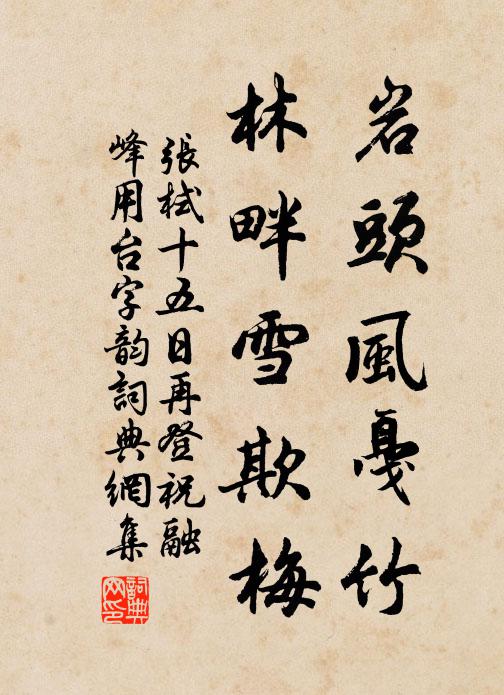 岩頭風戛竹
林畔雪欺梅
張栻十五日再登祝融
峰用台字韵詞典網集
詞典網印